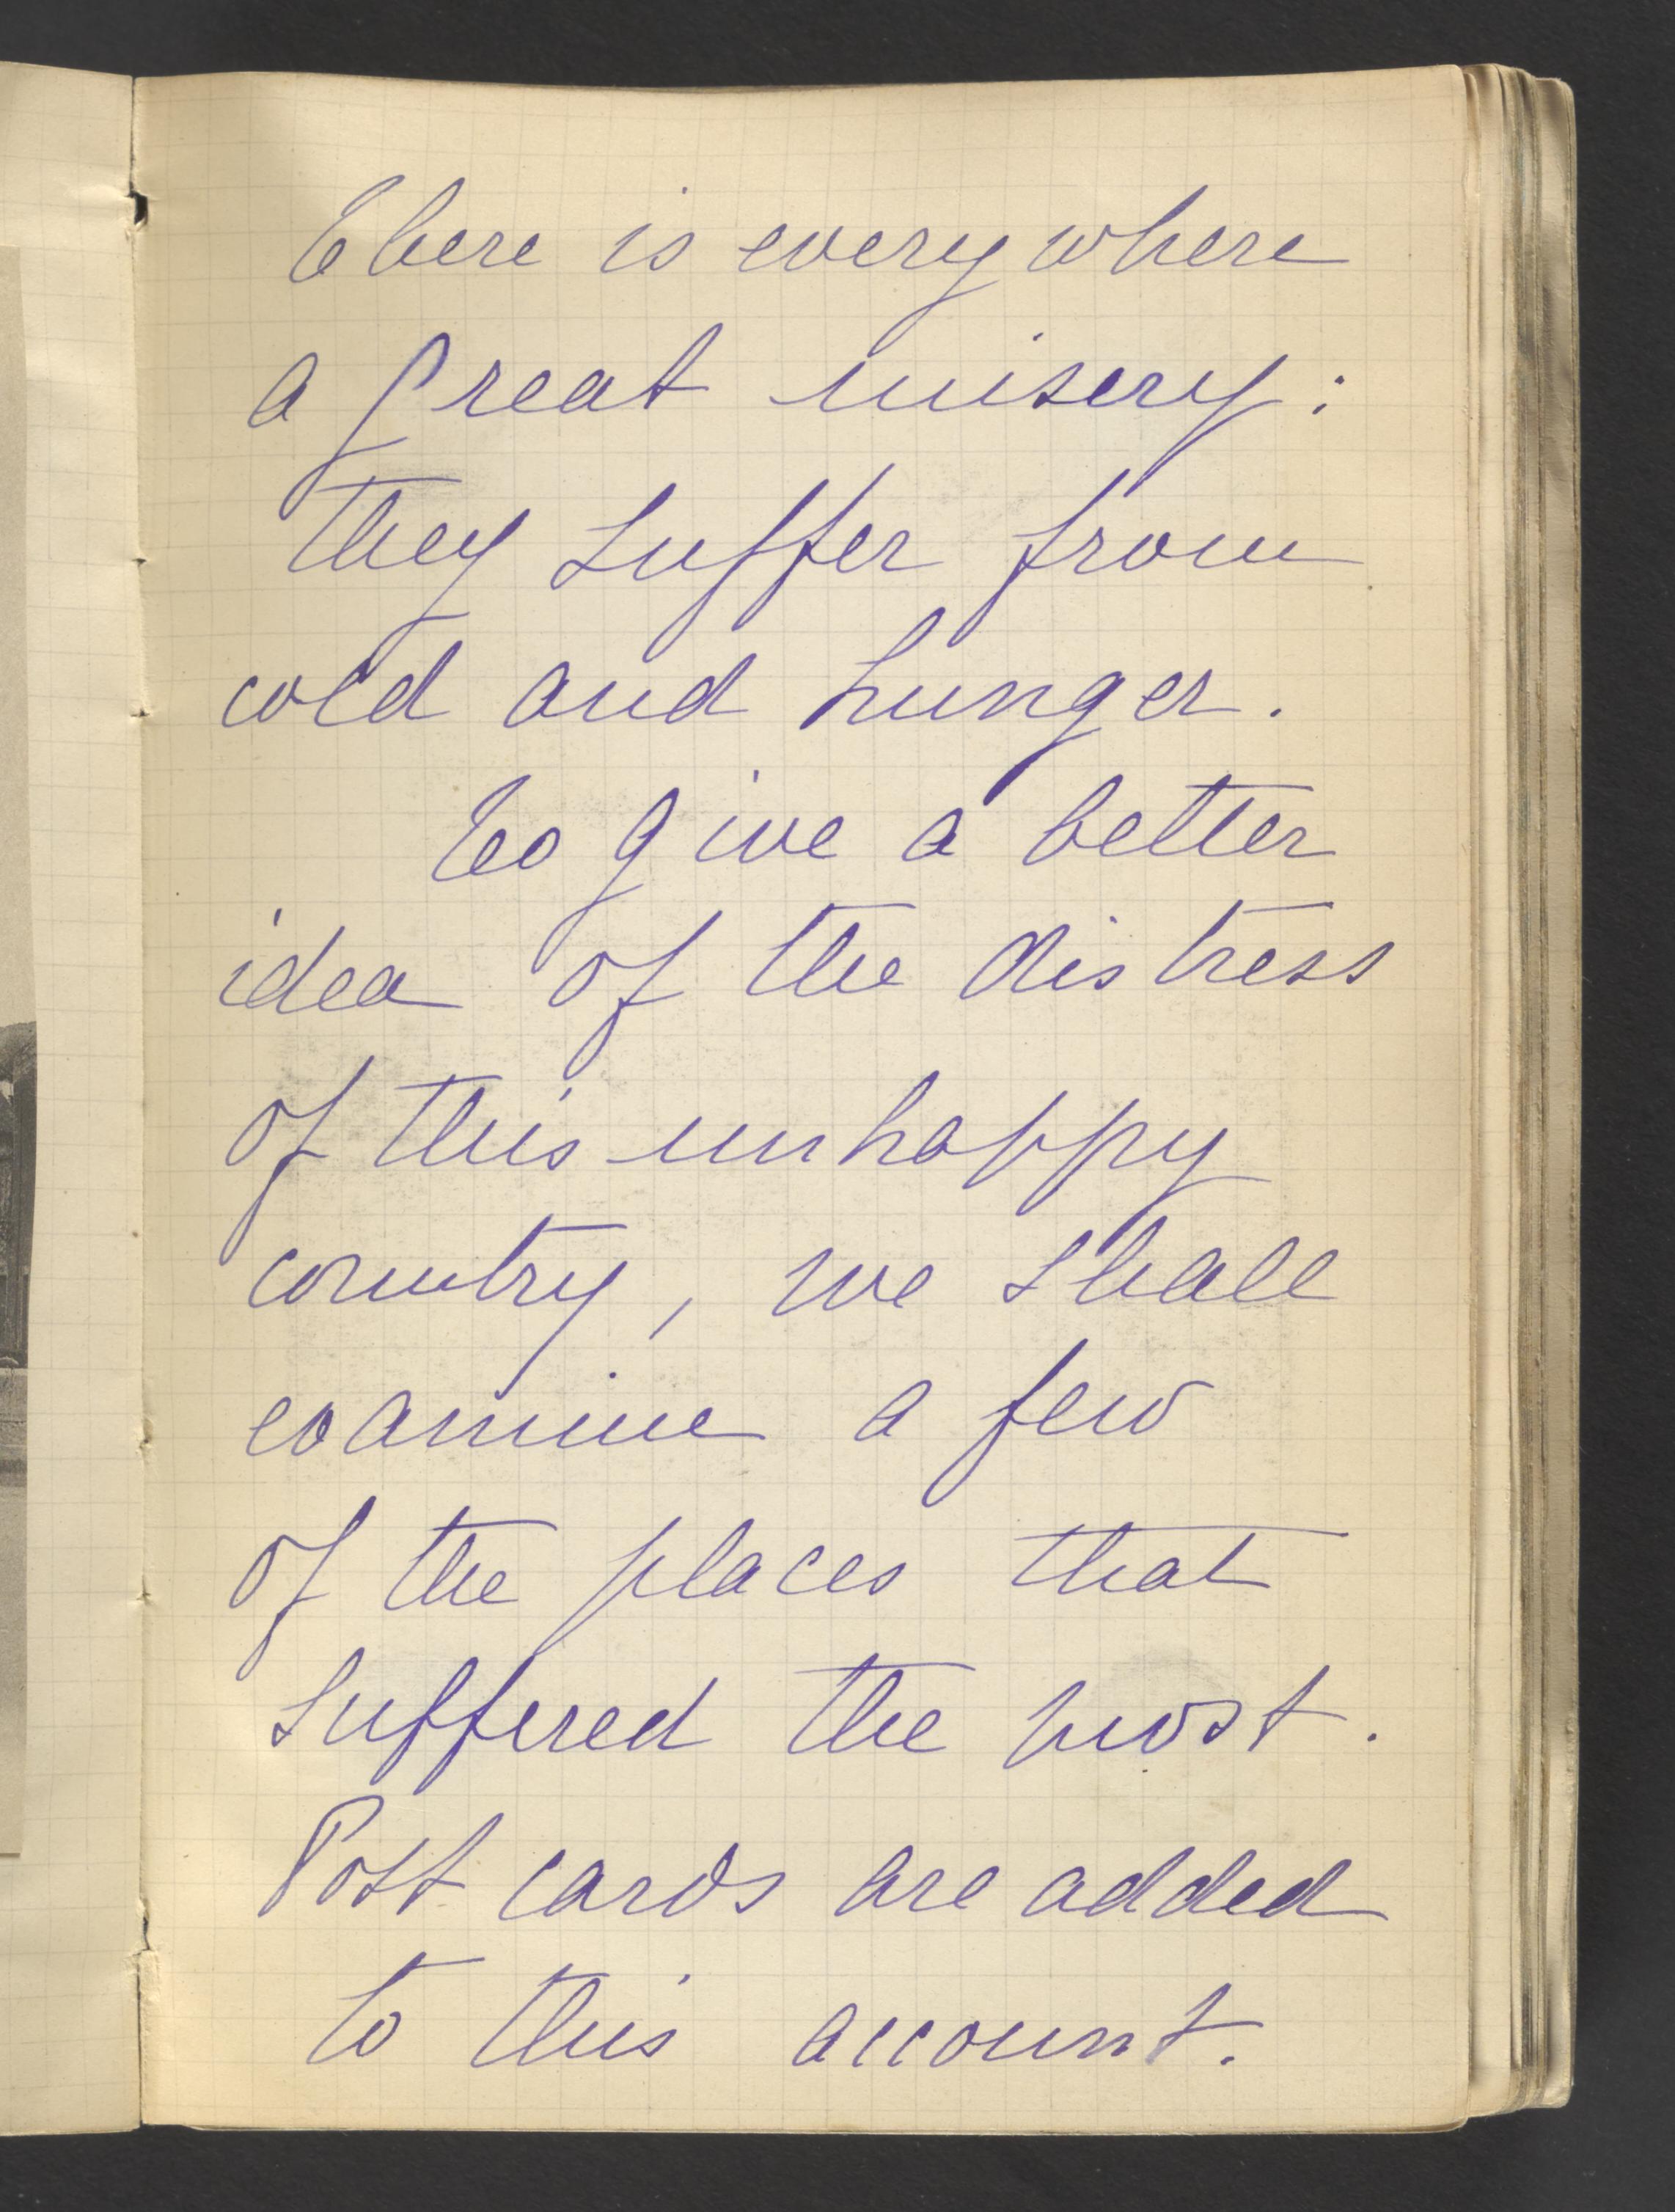 There is everywhere
a great misery :
they suffer from
cold and hunger.
To give a better
idea of the distress
of this unhappy
country, we shall
examine a few
of the places that
suffered the most.
Post cards are added
to this account.